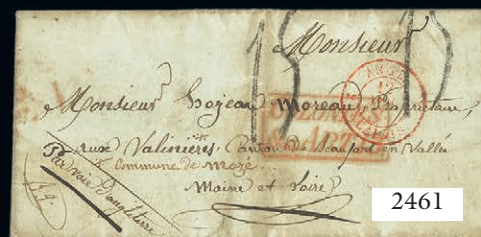 Monsieur
Monsieur Lojeau Moreau Propriétaire,
aux Valinières Canton de Beaufort en Vallée
Commune de Mozé
Maine et Loire
Par voie d'angleterre
15
15
COLONIES
& ART.
2461